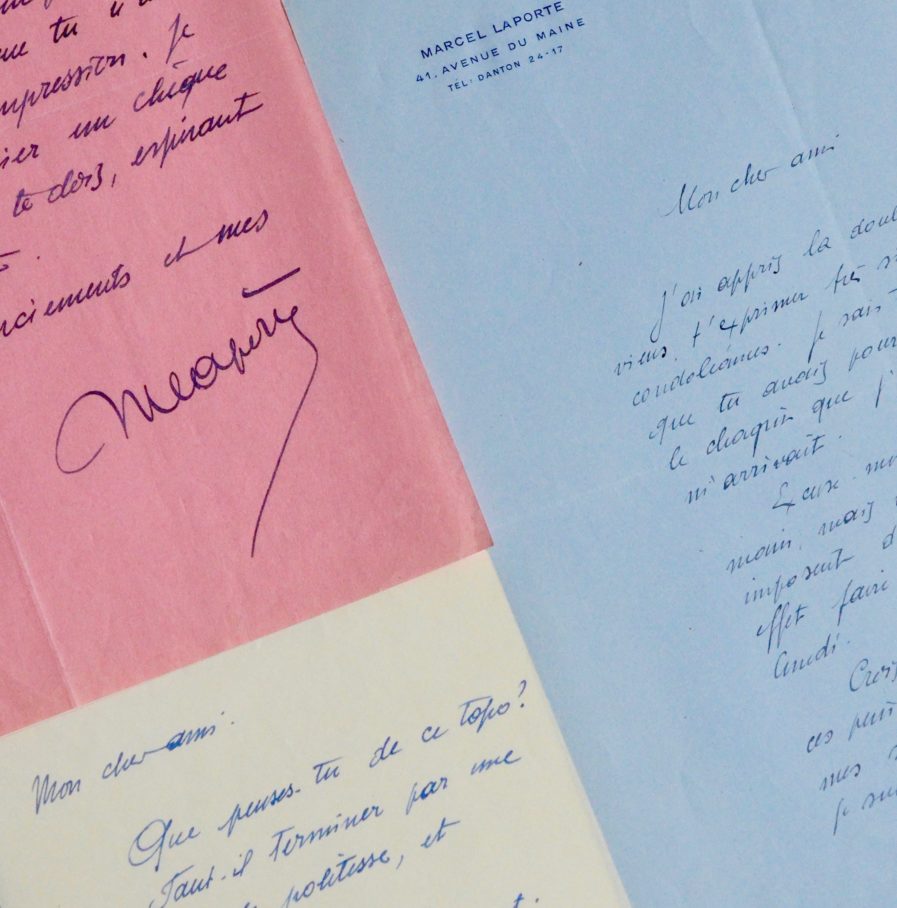 que tu
mpression. Je
un chèque
te dois, espérant
et mes
MLaporte
MARCEL LAPORTE
41, AVENUE DU MAINE
TÉL: DANTON 24-17
Mon cher ami
J'ai appris la doul
viens t'exprimer très
condoléances. Je sais
que tu avais pour
le chagrin que j'
m'arrivait.
Excuse-mo
main, mais
imposent d
effet faire
lundi.
Crois
ces
mes s
Je sui
Mon cher ami.
Que penses-tu de ce topo?
Faut-il terminer par une
politesse, et